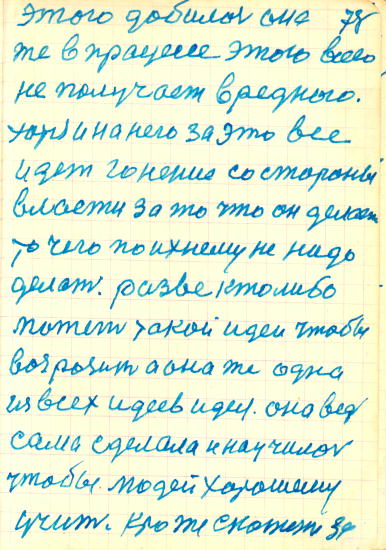 этого добилась она 78
же в працессе этого всего
не получает вредного.
хоть и на него за это все
идет гонение со стороны
власти за то что он делает
то чего по ихнему не надо
делат. разве кто либо
может такой идеи чтобы
возрозит а она же одна
из всех идеев идея. она вед
сама сделала и научилас
чтобы людей хорошему
учит. кто же скажет за